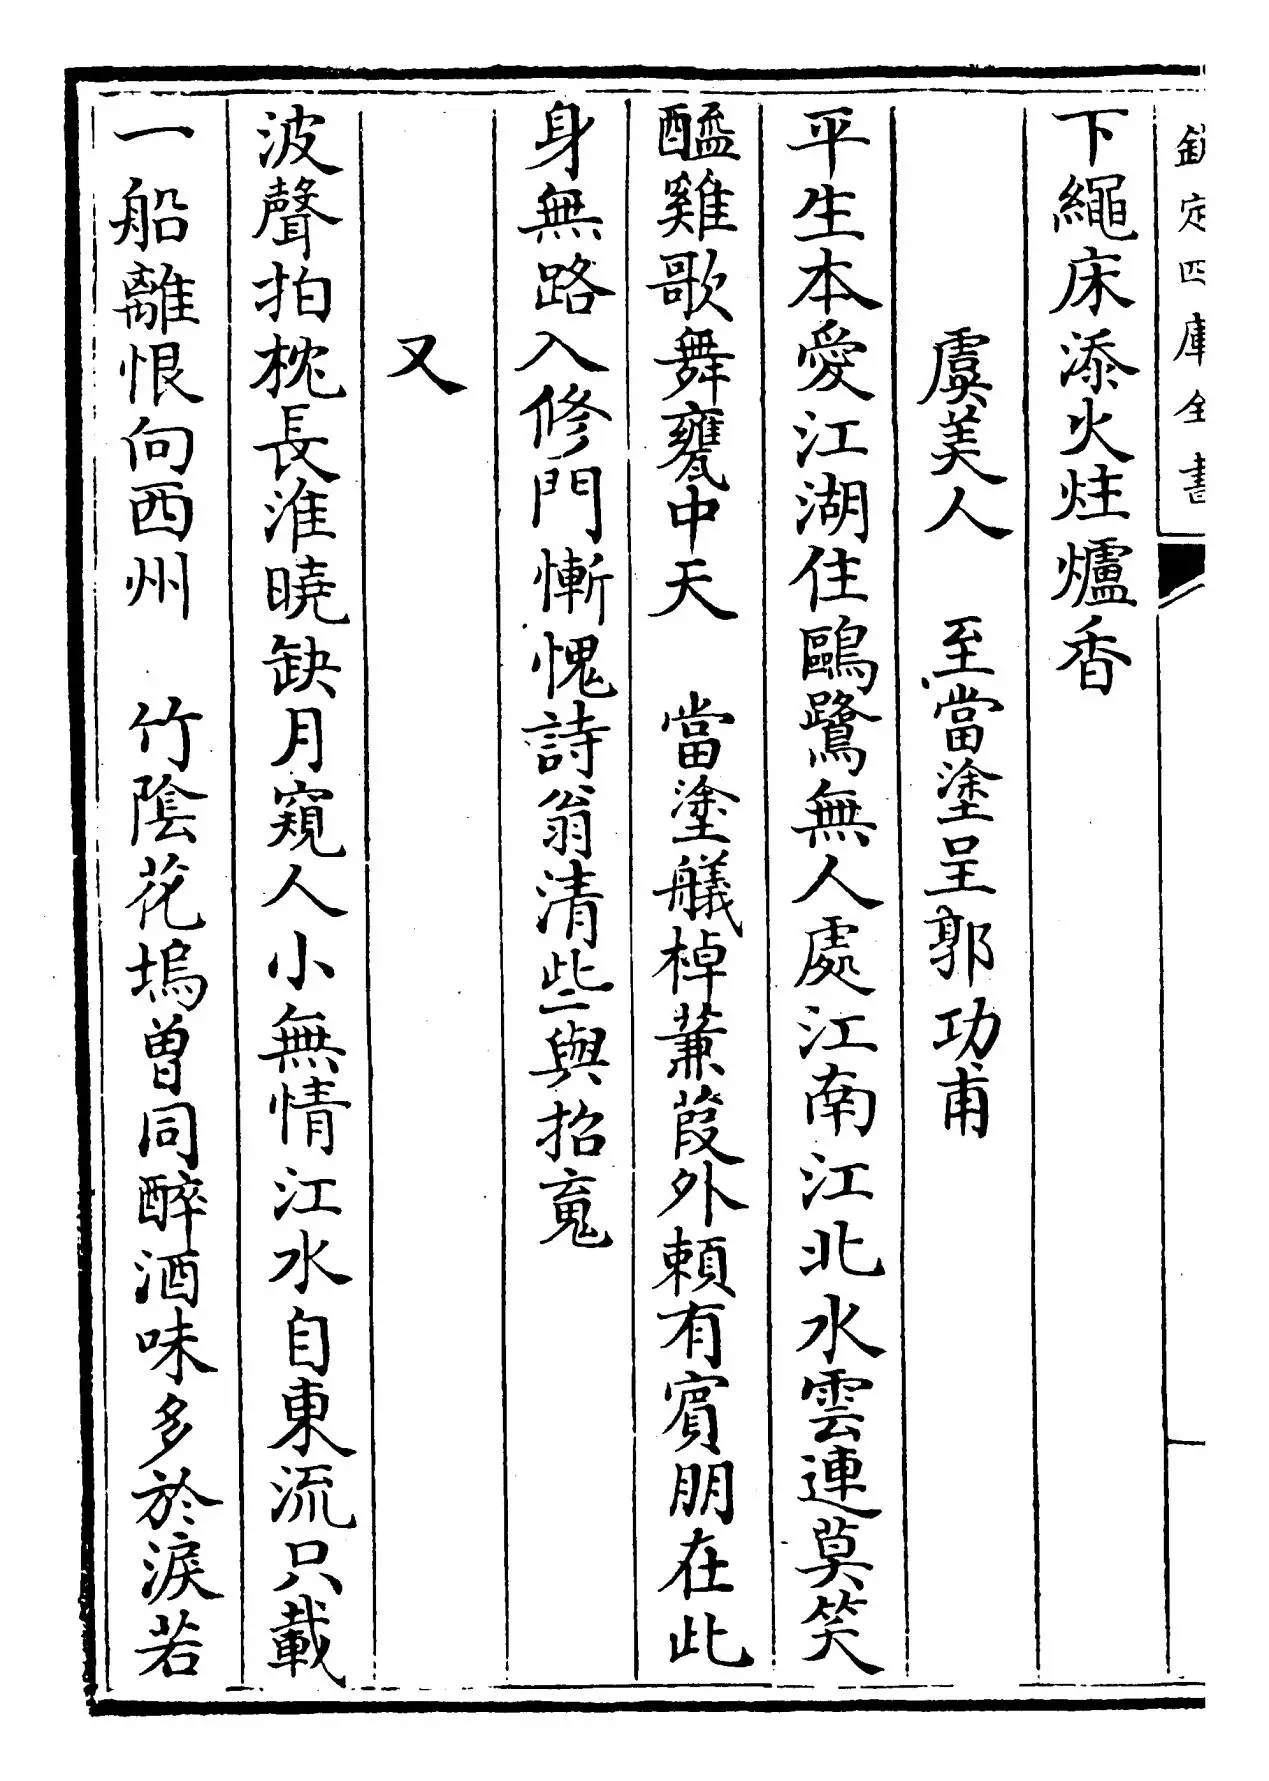 欽定四庫全書
下繩床添火炷爐香
虞美人　至當塗呈郭功甫
平生本愛江湖住鷗鷺無人處江南江北水雲連莫笑
醯雞歌舞甕中天　當塗艤棹蒹葭外頼有賔朋在此
身無路入修門慚愧詩翁清些與招䰟
又
波聲拍枕長淮曉缺月窺人小無情江水自東流只載
一船離恨向西州　竹陰花塢曽同醉酒味多於淚若